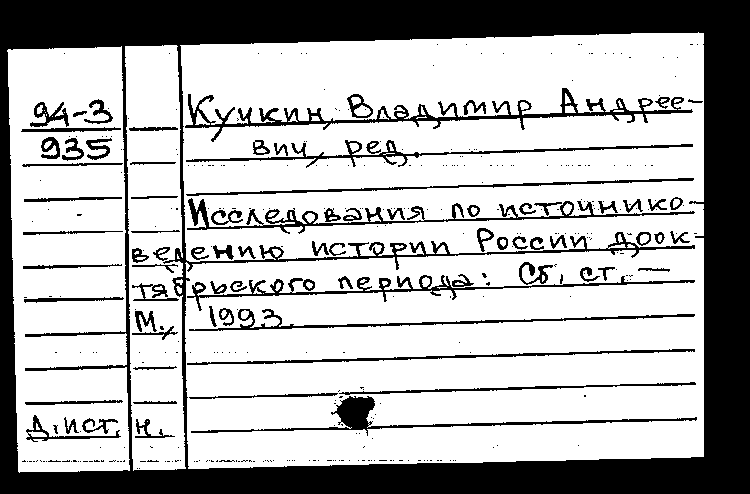 94-3 Кучкин, Владимир Андрее-
935 вич, ред.
Исследования по источнико-
ведению истории России доок-
тябрьского периода: Сб. ст. —
М., 1993.
Д.ист.н.